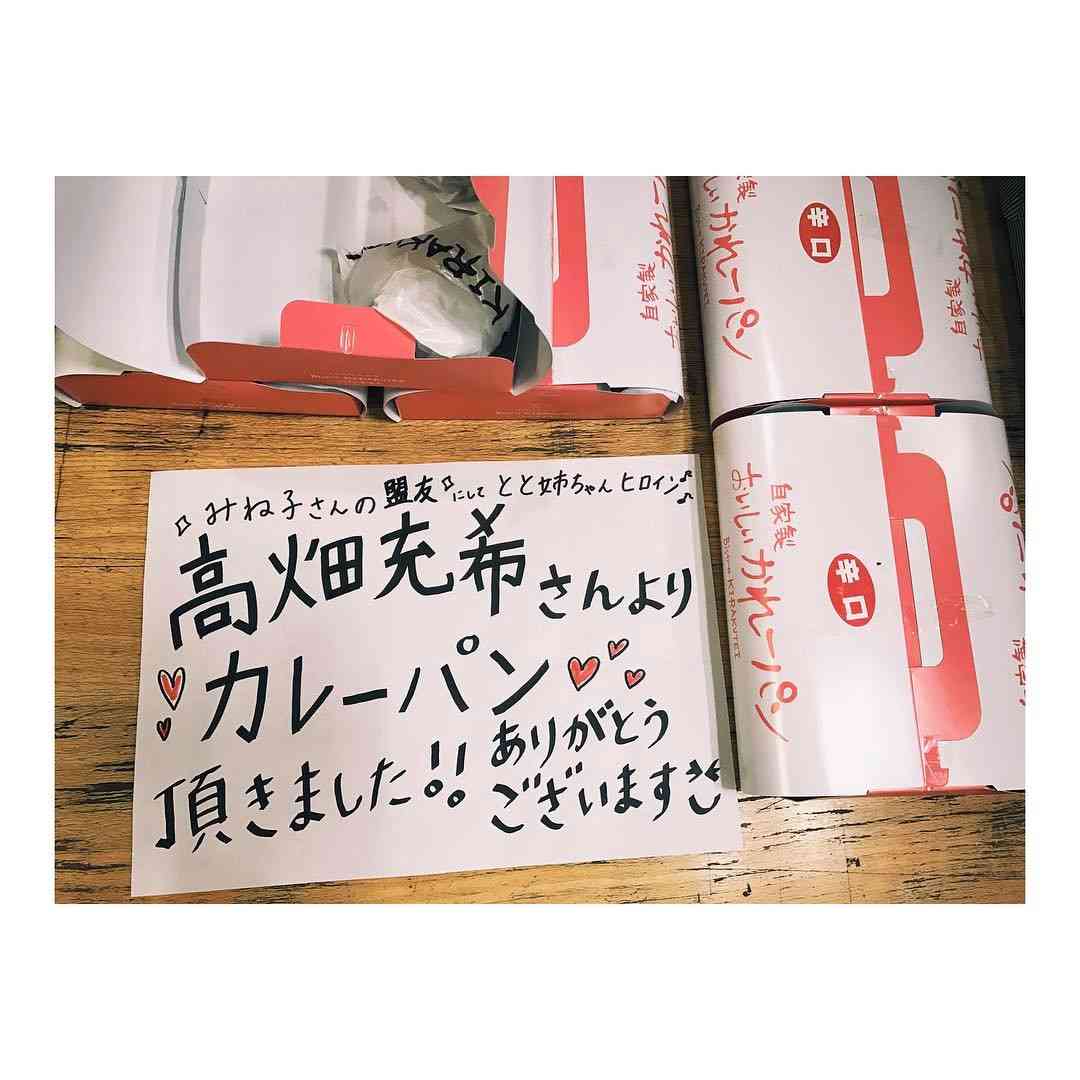 みね子さんの盟友にして とと姉ちゃん ヒロイン♪♪
高畑充希さんより
カレーパン
頂きました!!
ありがとう
ございます
KIRAKU
自家製
辛口
おいしいかれーパン
自家製
自家製
おいしいかれーパン
Bistro KIRAKUTEI
辛口